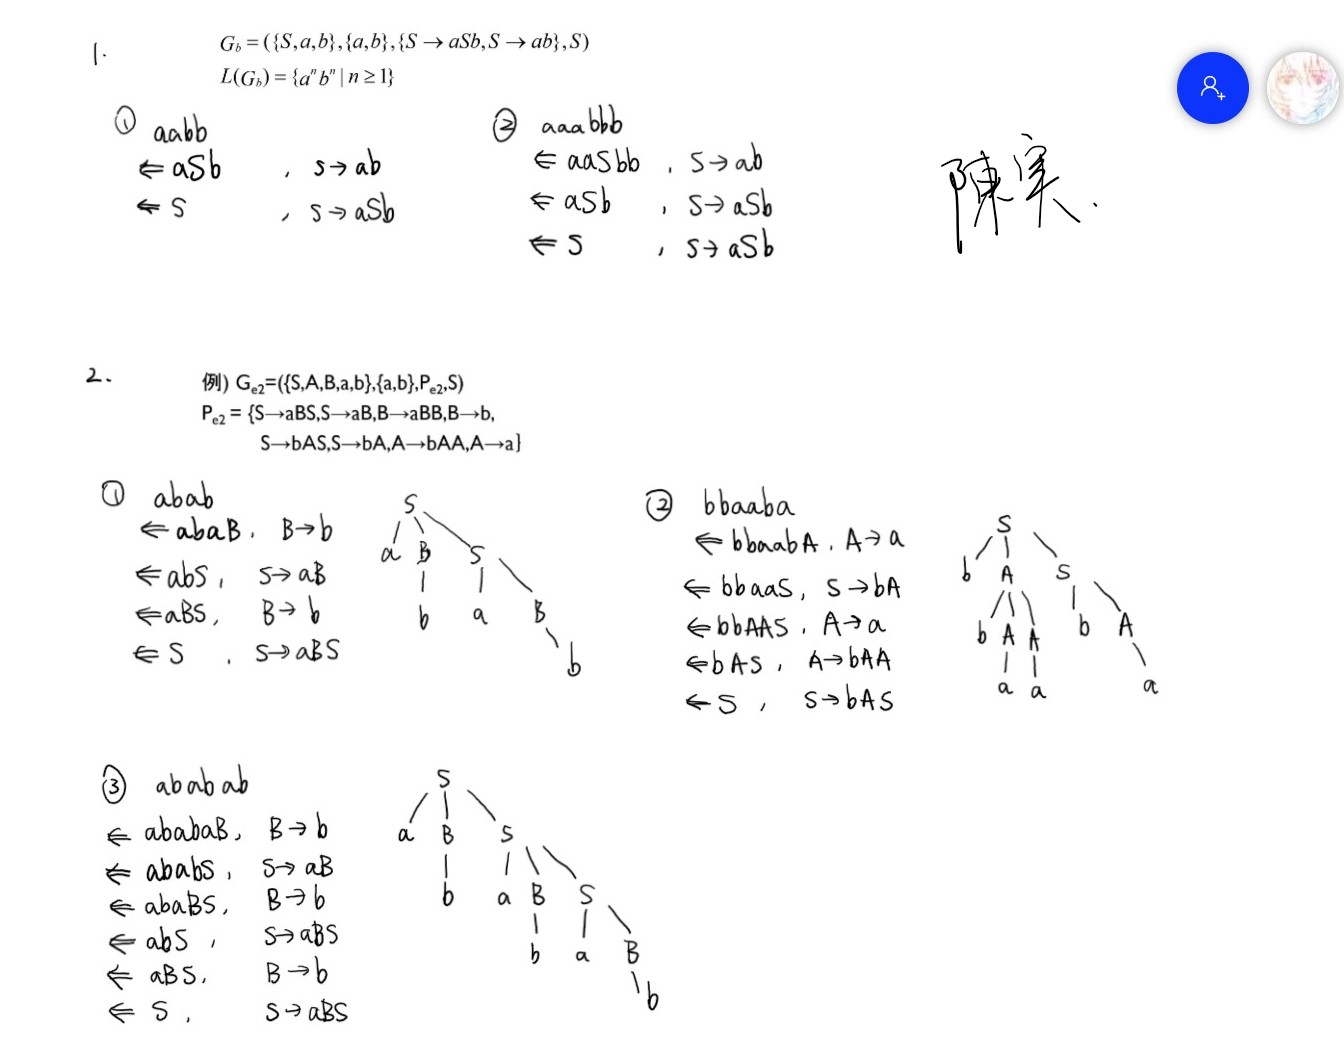 1.
G_b = ({S,a,b},{a,b},{S → aSb,S → ab},S)
L(G_b) = {a^n b^n | n ≥ 1}
① aabb
⇐ aSb , S→ab
⇐ S , S→aSb
② aaabbb
⇐ aaSbb , S→ab
⇐ aSb , S→aSb
⇐ S , S→aSb
陳実.
2.
例) G_e2=({S,A,B,a,b},{a,b},P_e2,S)
P_e2 = {S→aBS,S→aB,B→aBB,B→b,
S→bAS,S→bA,A→bAA,A→a}
① abab
⇐ abaB, B→b
⇐ abS, S→aB
⇐ aBS, B→b
⇐ S , S→aBS
S
a B S
b a B
b
② bbaaba
⇐ bbaabA, A→a
⇐ bbaaS, S→bA
⇐ bbAAS, A→a
⇐ bAS, A→bAA
⇐ S , S→bAS
S
b A S
b A A b A
a a a
③ ababab
⇐ ababaB, B→b
⇐ ababS, S→aB
⇐ abaBS, B→b
⇐ abS , S→aBS
⇐ aBS, B→b
⇐ S , S→aBS
S
a B S
b a B S
b a B
b